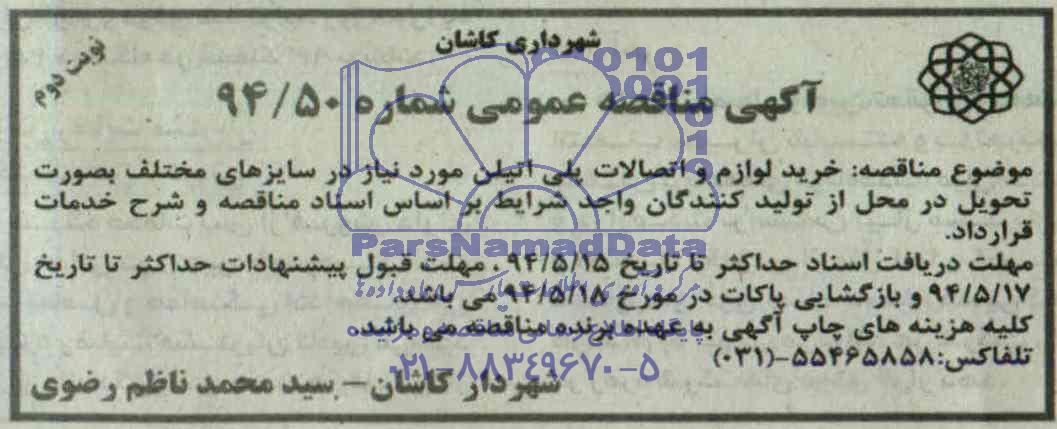 شهرداری کاشان
نوبت دوم
آگهی مناقصه عمومی شماره ۹۴/۵۰
موضوع مناقصه: خرید لوازم و اتصالات پلی اتیلن مورد نیاز در سایزهای مختلف بصورت
تحویل در محل از تولید کنندگان واجد شرایط بر اساس اسناد مناقصه و شرح خدمات
قرارداد.
مهلت دریافت اسناد حداکثر تا تاریخ ۹۴/۵/۱۵ ، مهلت قبول پیشنهادات حداکثر تا تاریخ
۹۴/۵/۱۷ و بازگشایی پاکات در مورخ ۹۴/۵/۱۸ می باشد.
کلیه هزینه های چاپ آگهی به عهده برنده مناقصه می باشد.
تلفاکس:۵۵۴۶۵۸۵۸-(۰۳۱)
شهردار کاشان – سید محمد ناظم رضوی
ParsNamadData
۰۲۱-۸۸۳۴۹۶۷۰-۵